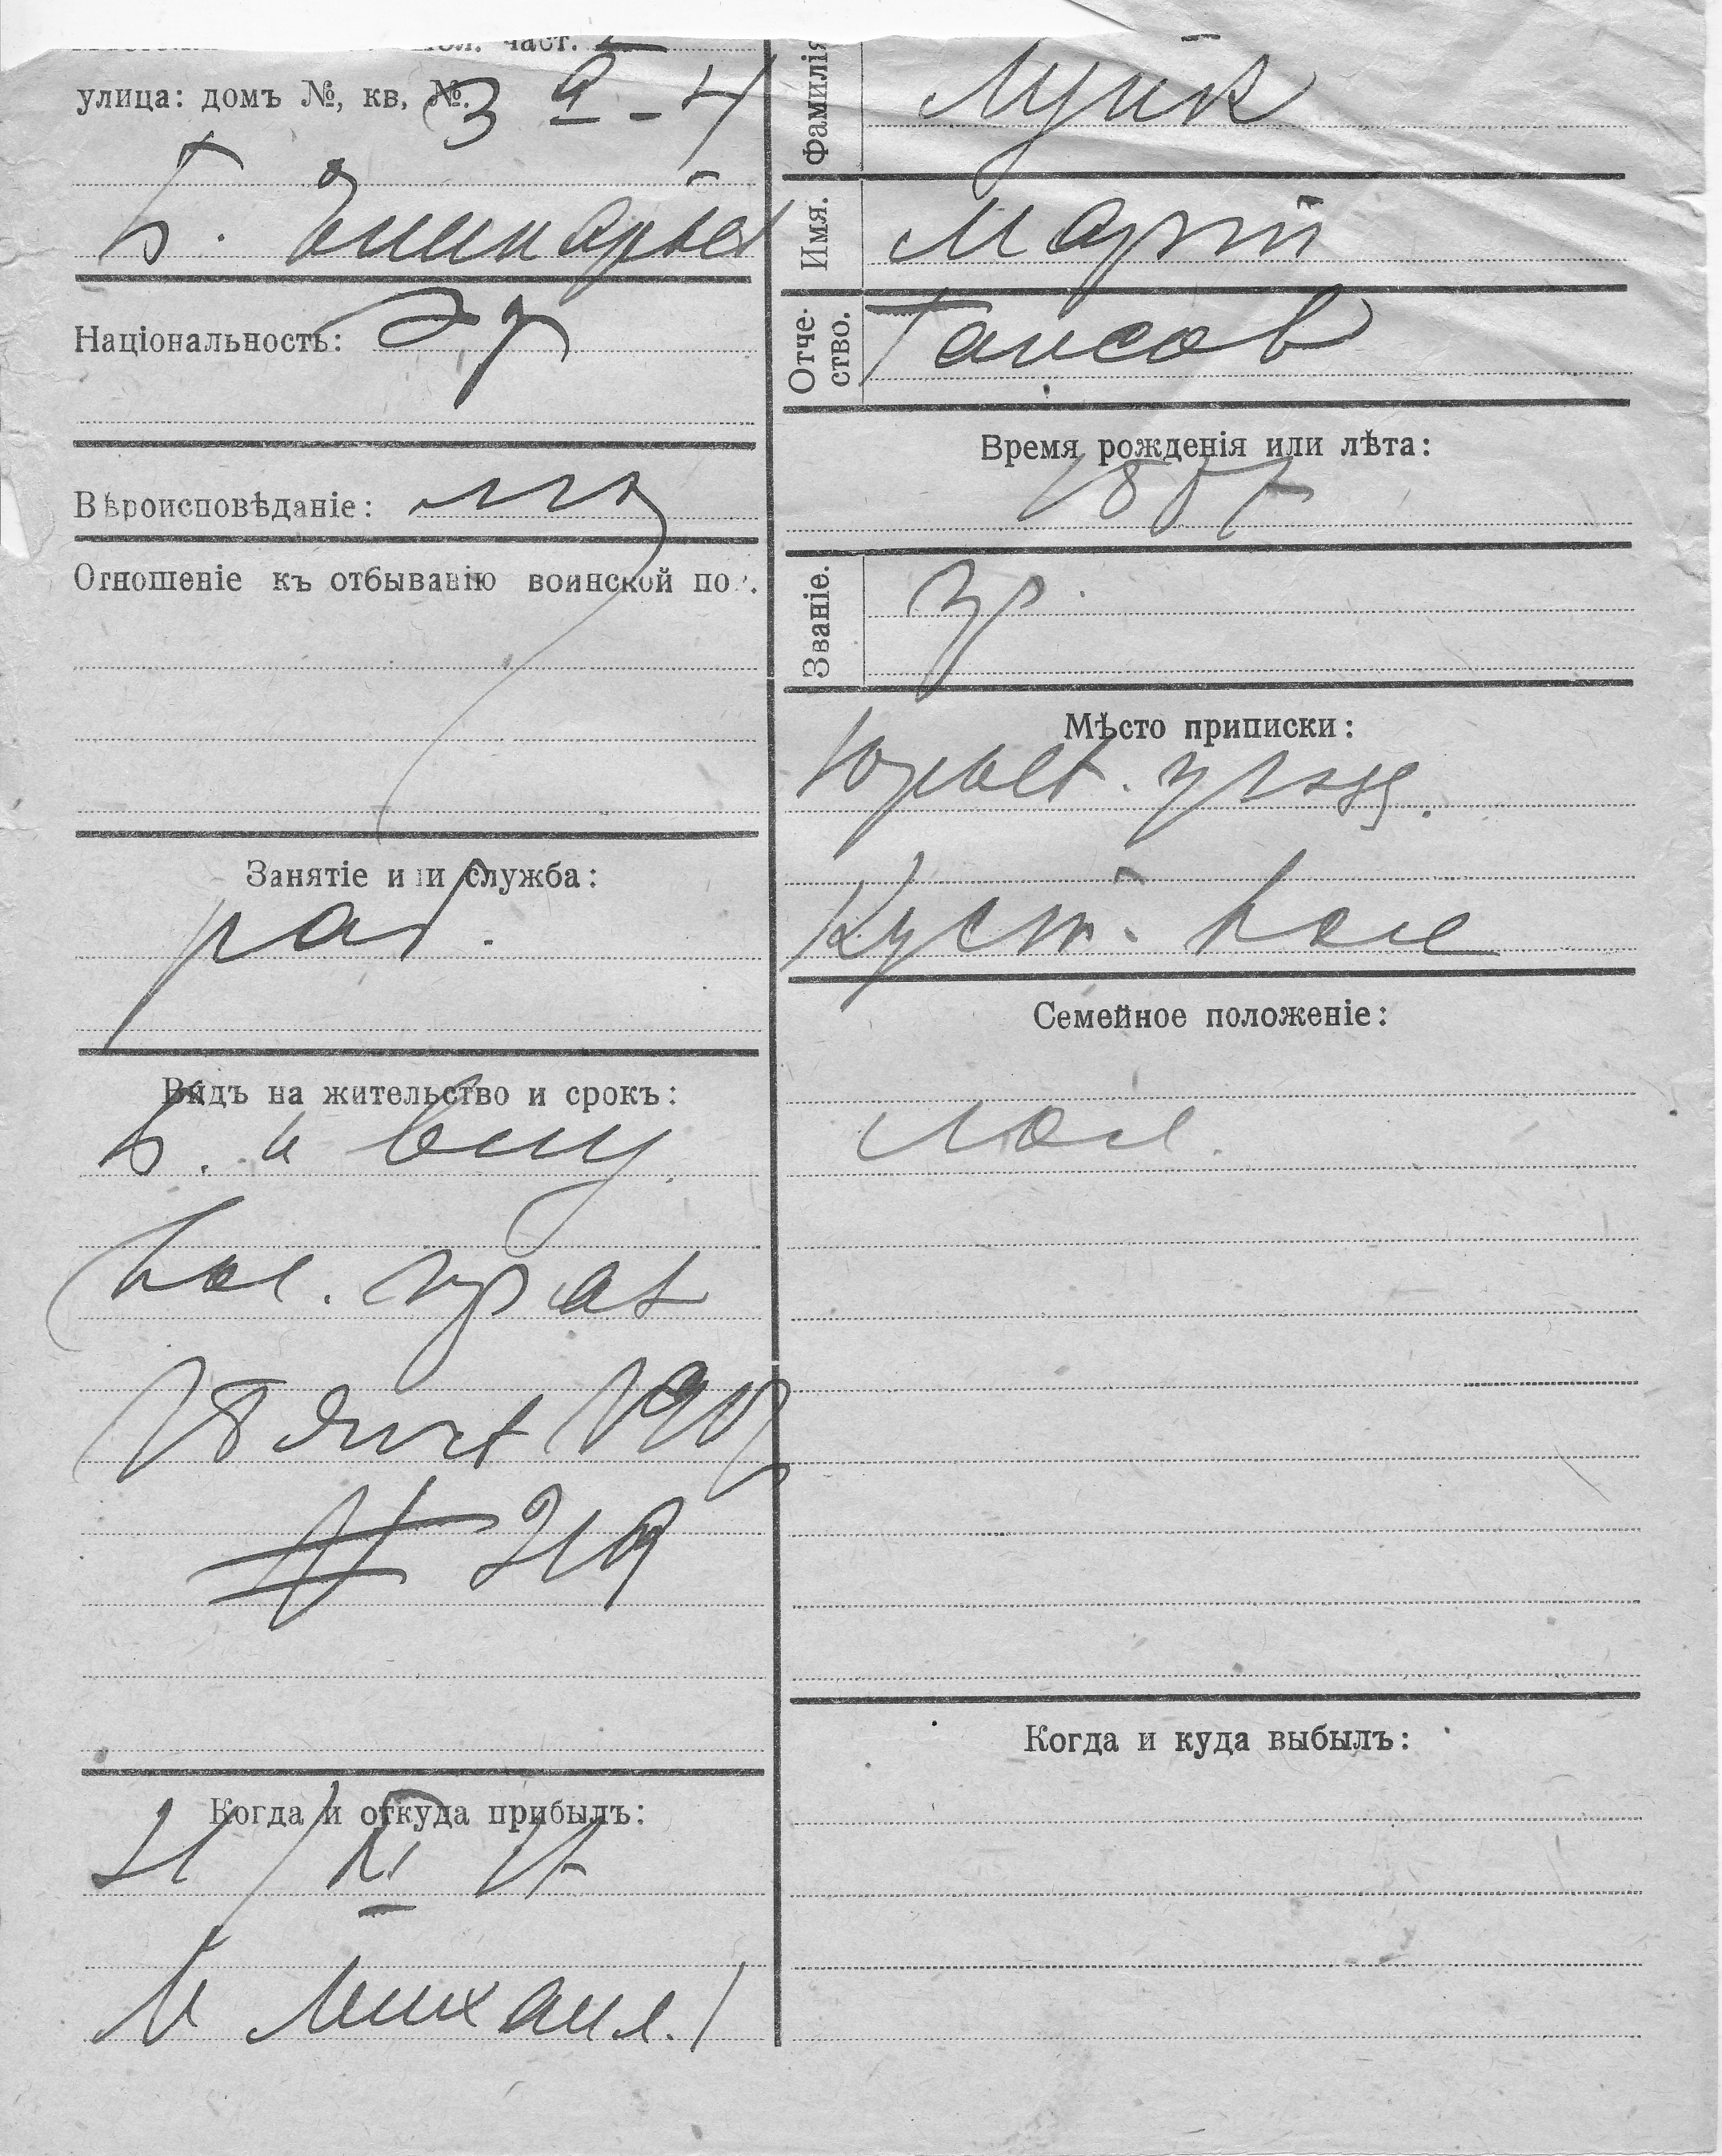 част. 2
улица: домъ №, кв. №. 3 а - 4
Б.
Національность: Эр
Вѣроисповѣданіе:
Отношеніе къ отбыванію воинской по.
Занятіе или служба:
раб.
Видъ на жительство и срокъ:
Б.
вол. прав
18 1907
№ 219
Когда и откуда прибылъ:
21 / XI 17
М Михаил. 1
Фамилія
Луик
Имя.
Март
Отче-
ство.
Гансов
Время рожденія или лѣта:
1887
Званіе.
кр.
Мѣсто приписки:
Юрьев. уѣзд.
Куст. вол
Семейное положеніе:
хол.
Когда и куда выбылъ: